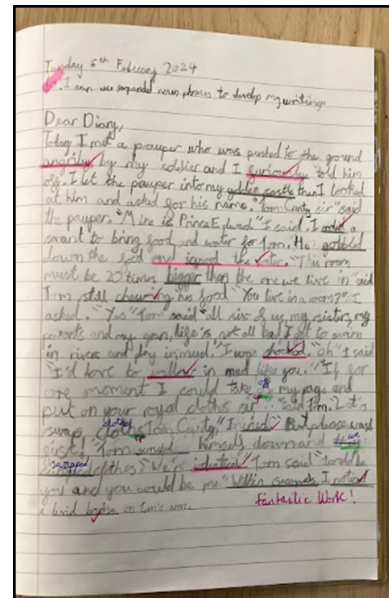 Tuesday 6th February 2024
I can use expanded noun phrases to develop my writing.
Dear Diary,
Today I met a pauper who was pushed to the ground
angrily by my soldier and I furiously told him
off. I let the pauper into my golden castle then I looked
at him and asked for his name. "Tom Canty sir" said
the pauper. "Mine is Prince Edward" I said. I asked a
servant to bring food and water for Tom. He gobbled
down the food and ignord the water. "This room
must be 20 times bigger than the one we live in" said
Tom still chewing his food "You live in a room?" I
asked. "Yes" Tom said "all six of us, my sister, my
parents and my gran, life's not all bad I get to swim
in rivers and play in mud." I was shocked. "Oh" I said
"I'd love to wallow in mud like you." "If for
one moment I could take off my rags and
put on your royal cloths sir..." said Tom. "Let's
swap clothes Tom Canty" I said. But phase was
first. Tom himself down and
swapped clothes "We're identical" Tom said "I could be
you and you could be me" Within seconds I noticed
a livid bruise on Tom's arm.
fantastic work!